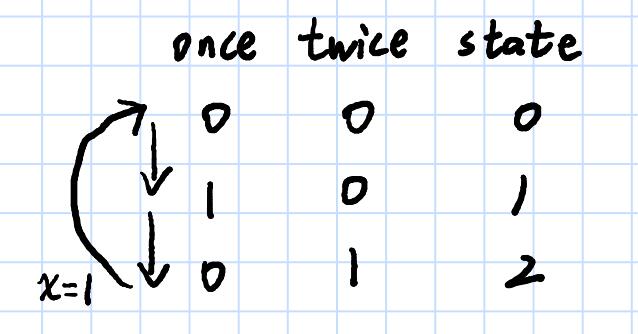 once twice state
0 0 0
1 0 1
x=1 0 1 2